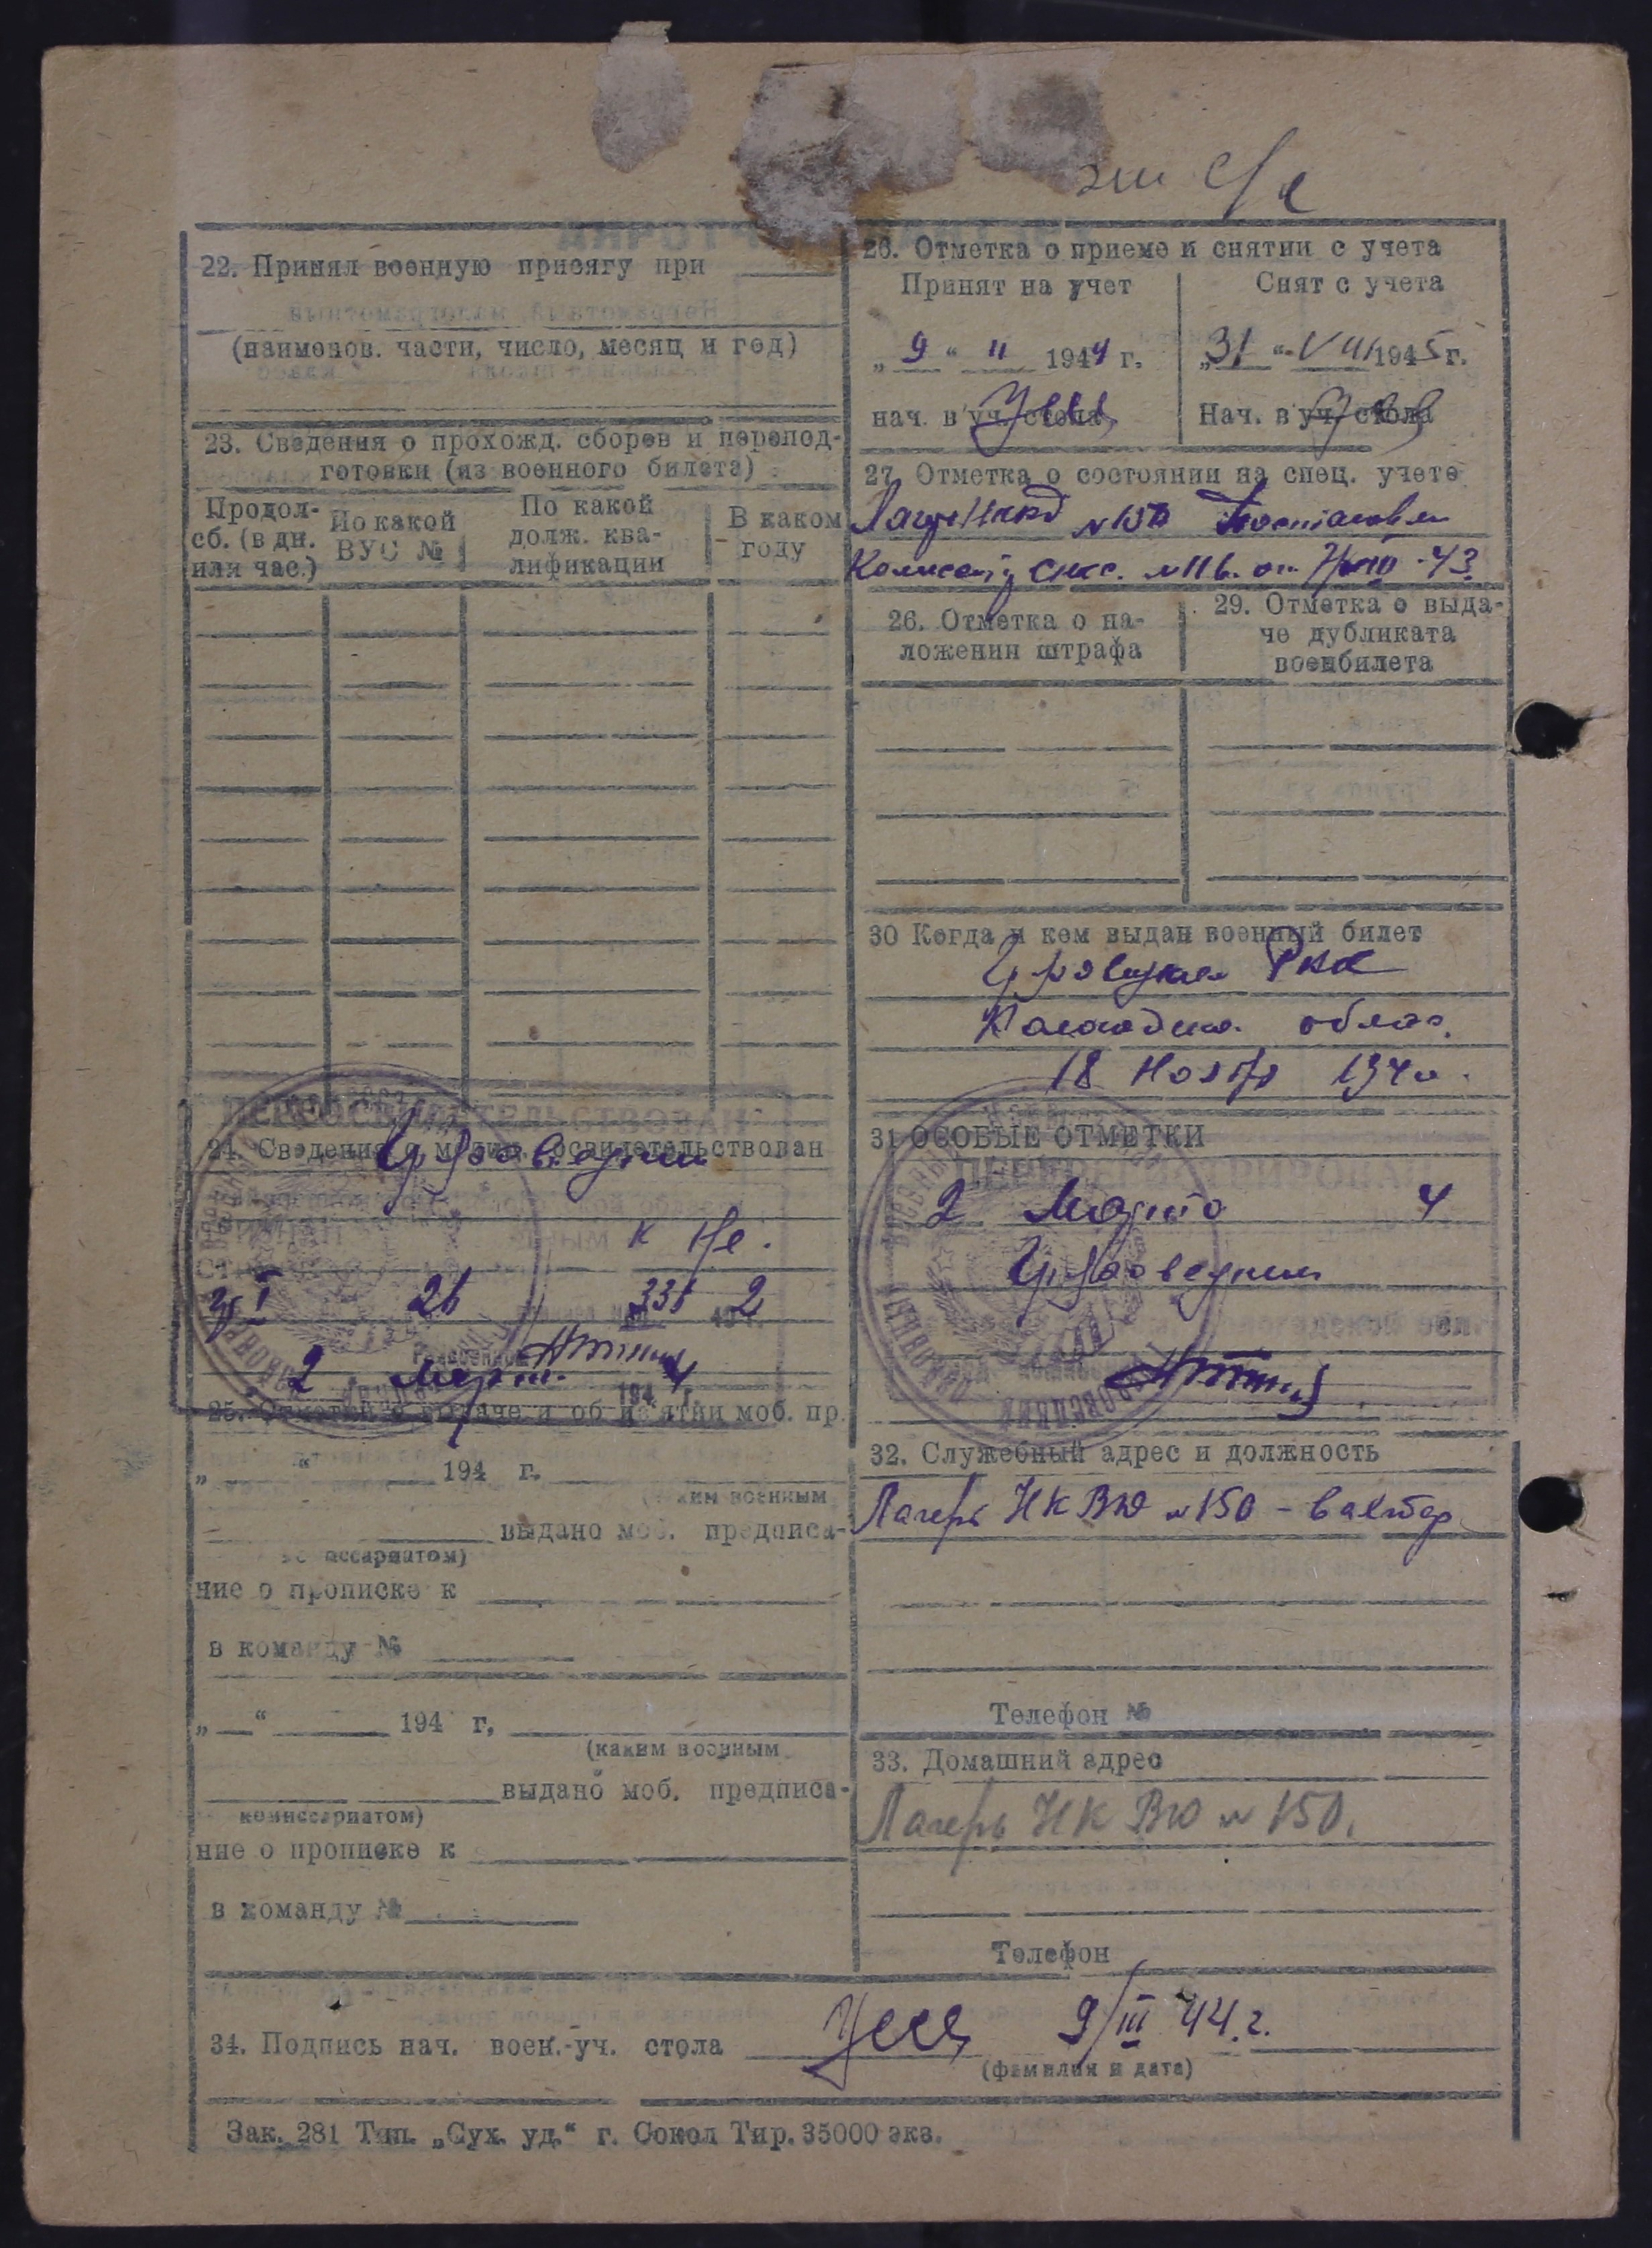 22. Принял военную присягу при
(наименов. части, число, месяц и год)
23. Сведения о прохожд. сборов и перепод-
готовки (из военного билета)
Продол-
сб. (в дн.
или час.)
По какой
ВУС №
По какой
долж. ква-
лификации
В каком
году
24. Сведения о медиц. освидетельствован
ПЕРЕОСВИДЕТЕЛЬСТВОВАН
к н/с.
26 336 2
2 Март 1944 г.
25. Отметки о выдаче и об из'ятии моб. пр.
„ “ 194 г.
(каким военным
выдано моб. предписа-
комиссариатом)
ние о прописке к
в команду №
„ “ 194 г,
(каким военным
выдано моб. предписа-
комиссариатом)
ние о прописке к
в команду №
26. Отметка о приеме и снятии с учета
Принят на учет
Снят с учета
„ 9 “ 11 1944 г.
„ 31 “ VIII 1945 г.
нач. в уч. стола
Нач. в уч. стола
27. Отметка о состоянии на спец. учете
Лагерь НКВД №150
26. Отметка о на-
ложении штрафа
29. Отметка о выда-
че дубликата
военбилета
30 Когда и кем выдан военный билет
РВК
Вологодска. облас.
18 Ноября 1940.
31 ОСОБЫЕ ОТМЕТКИ
ПЕРЕРЕГИСТРИРОВАН
2 Марта 4
Грязовецким
32. Служебный адрес и должность
Лагерь НКВД №150 - вахтер
Телефон №
33. Домашний адрес
Лагерь НКВД №150.
Телефон
34. Подпись нач. воен.-уч. стола 9/III 44.г.
(фамилия и дата)
Зак. 281 Тип. „Сух. уд.“ г. Сокол Тир. 35000 экз.